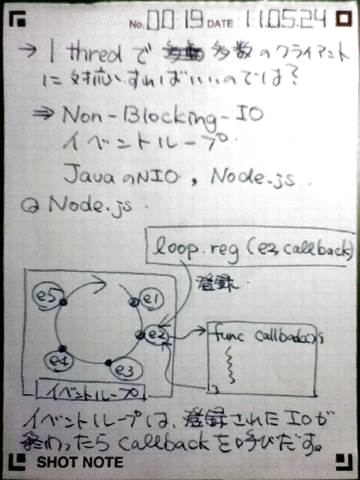 No. 00 19 DATE 11.05.24
→ 1 thred で 多数のクライアント
に対応すればいいのでは?
⇒ Non-Blocking-IO
イベントループ
JavaのNIO, Node.js.
Node.js.
loop.reg (e2, callback)
登録
e5
e1
e2
e4
e3
func callback() {
}
イベントループ
イベントループは、登録されたIOが
終わったらcallbackを呼びだす。
SHOT NOTE